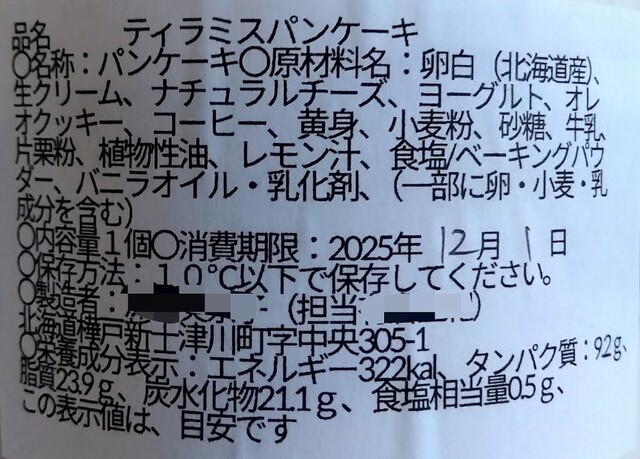 品名　ティラミスパンケーキ
〇名称：パンケーキ〇原材料名：卵白（北海道産)、
生クリーム、ナチュラルチーズ、ヨーグルト、オレ
オクッキー、コーヒー、黄身、小麦粉、砂糖、牛乳、
片栗粉、植物性油、レモン汁、食塩/ベーキングパウ
ダー、バニラオイル・乳化剤、(一部に卵・小麦・乳
成分を含む)
〇内容量１個〇消費期限：2025年 12月 1日
〇保存方法：１０℃以下で保存してください。
〇製造者： (担当
北海道樺戸新士津川町字中央305-1
〇栄養成分表示：エネルギー322kal、タンパク質：92g、
脂質23.9ｇ、炭水化物21.1ｇ、食塩相当量0.5ｇ、
この表示値は、目安です